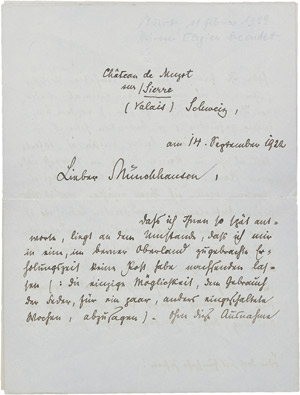 Château de Muzot
sur Sierre
(Valais) Schweiz,
am 14. September 1922
Lieber Münchhausen,
Daß ich Ihnen so spät ant-
worte, liegt an dem Umstande, daß ich mir
in ein, im berner Oberland zugebrachte Er-
holungszeit keine Post habe nachsenden las-
sen (: die einzige Möglichkeit, dem Gebrauch
der Feder, für ein paar, anders eingeschaltete
Wochen, abzusagen). Ohne diese Ausnahme